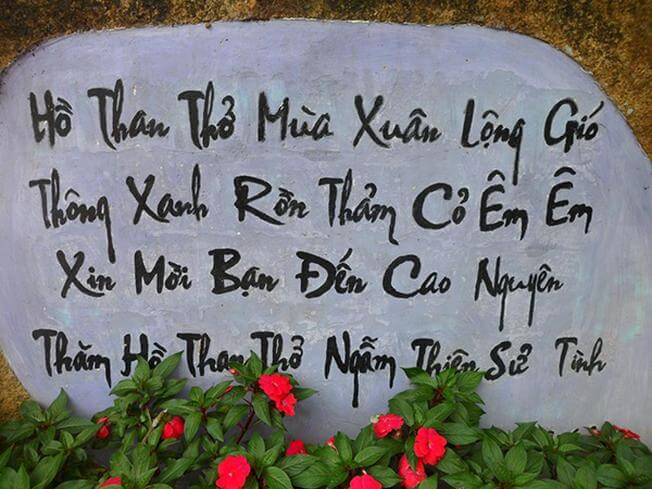 Hồ Than Thở Mùa Xuân Lộng Gió
Thông Xanh Rờn Thảm Cỏ Êm Êm
Xin Mời Bạn Đến Cao Nguyên
Thăm Hồ Than Thở Ngẫm Thiên Sử Tình